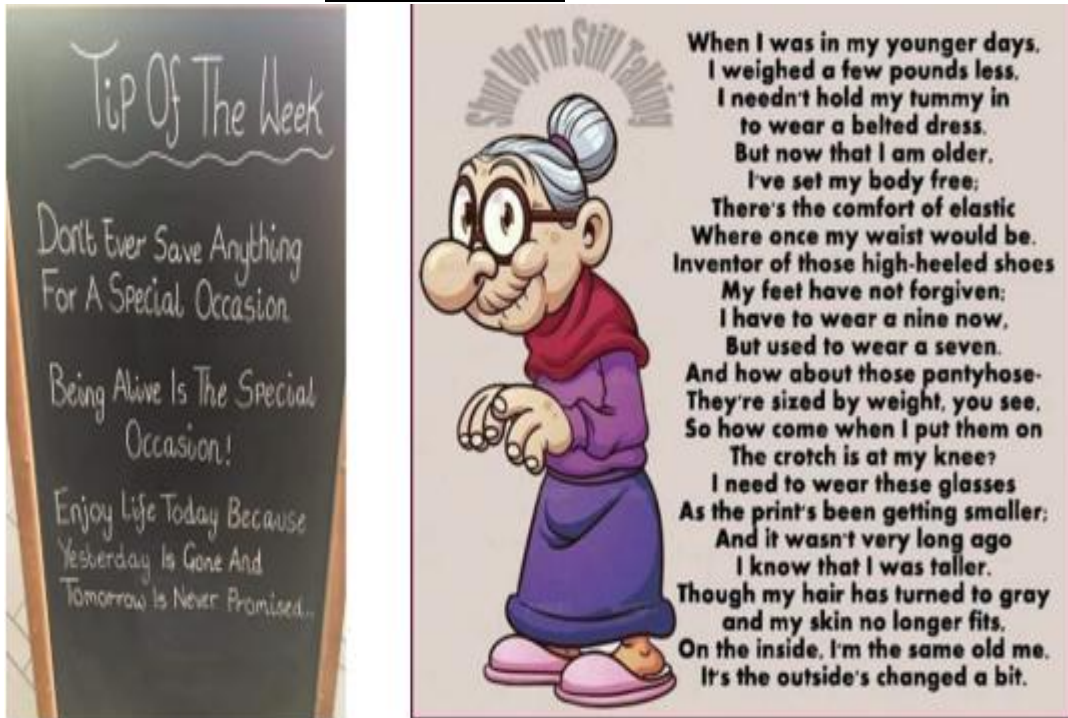 Tip Of The Week
Don't Ever Save Anything
For A Special Occasion
Being Alive Is The Special
Occasion!
Enjoy Life Today Because
Yesterday Is Gone And
Tomorrow Is Never Promised...
Shut Up I'm Still Talking
When I was in my younger days,
I weighed a few pounds less,
I needn't hold my tummy in
to wear a belted dress.
But now that I am older,
I've set my body free;
There's the comfort of elastic
Where once my waist would be.
Inventor of those high-heeled shoes
My feet have not forgiven;
I have to wear a nine now,
But used to wear a seven.
And how about those pantyhose-
They're sized by weight, you see,
So how come when I put them on
The crotch is at my knee?
I need to wear these glasses
As the print's been getting smaller;
And it wasn't very long ago
I know that I was taller.
Though my hair has turned to gray
and my skin no longer fits,
On the inside, I'm the same old me,
It's the outside's changed a bit.